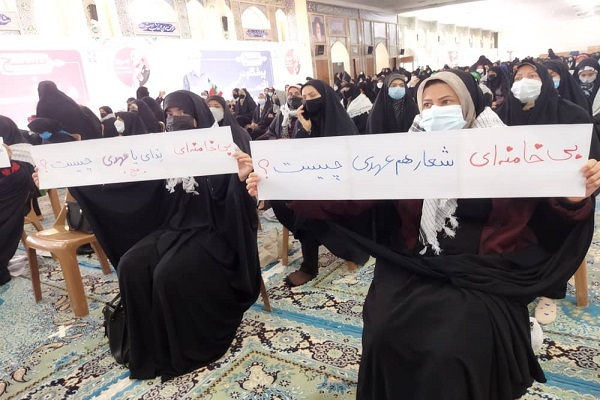 بی خامنه‌ای شعار هم عهدی چیست؟
بی خامنه‌ای ندای یا مهدی چیست؟
بسیج